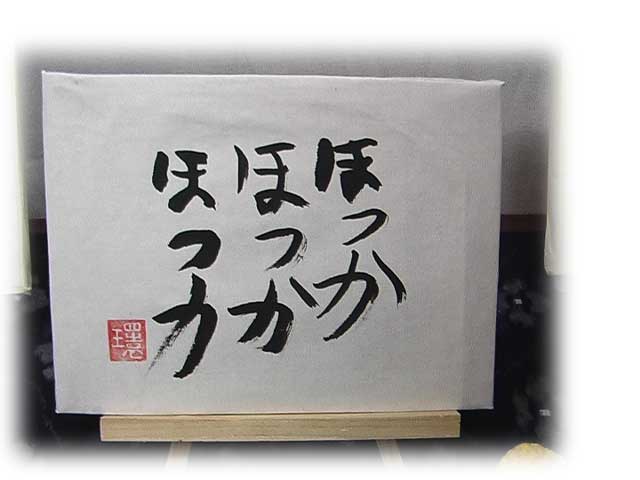 ほっか
ほっか
ほっカ